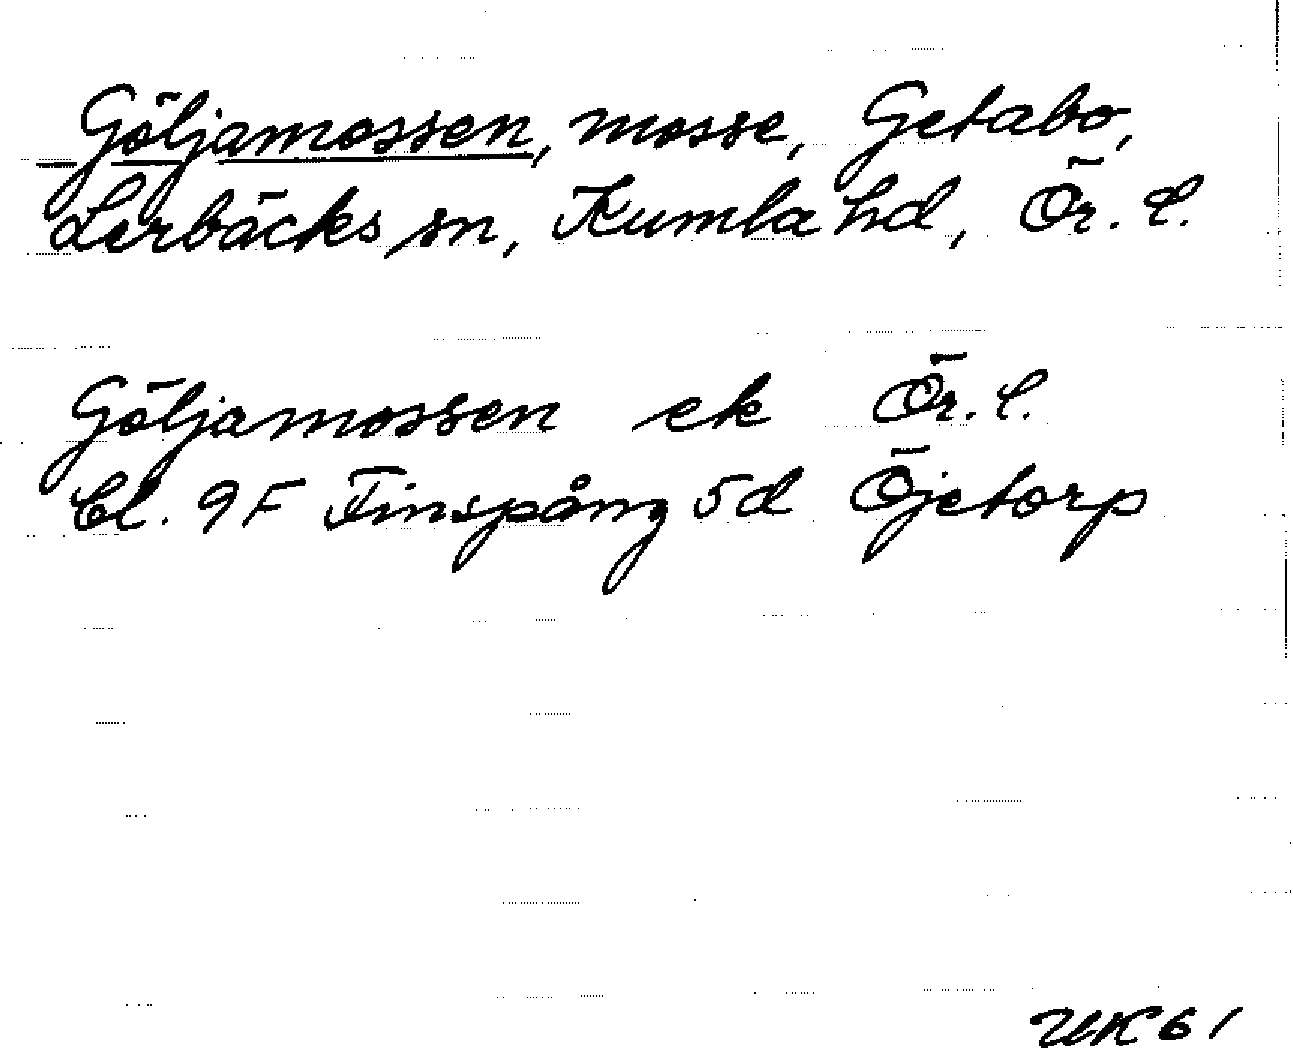 Göljamossen, mosse, Getabo,
Lerbäcks sn, Kumla hd, Ör. l.
Göljamossen ek Ör. l.
Bl. 9F Finspång 5d Öjetorp
UK61